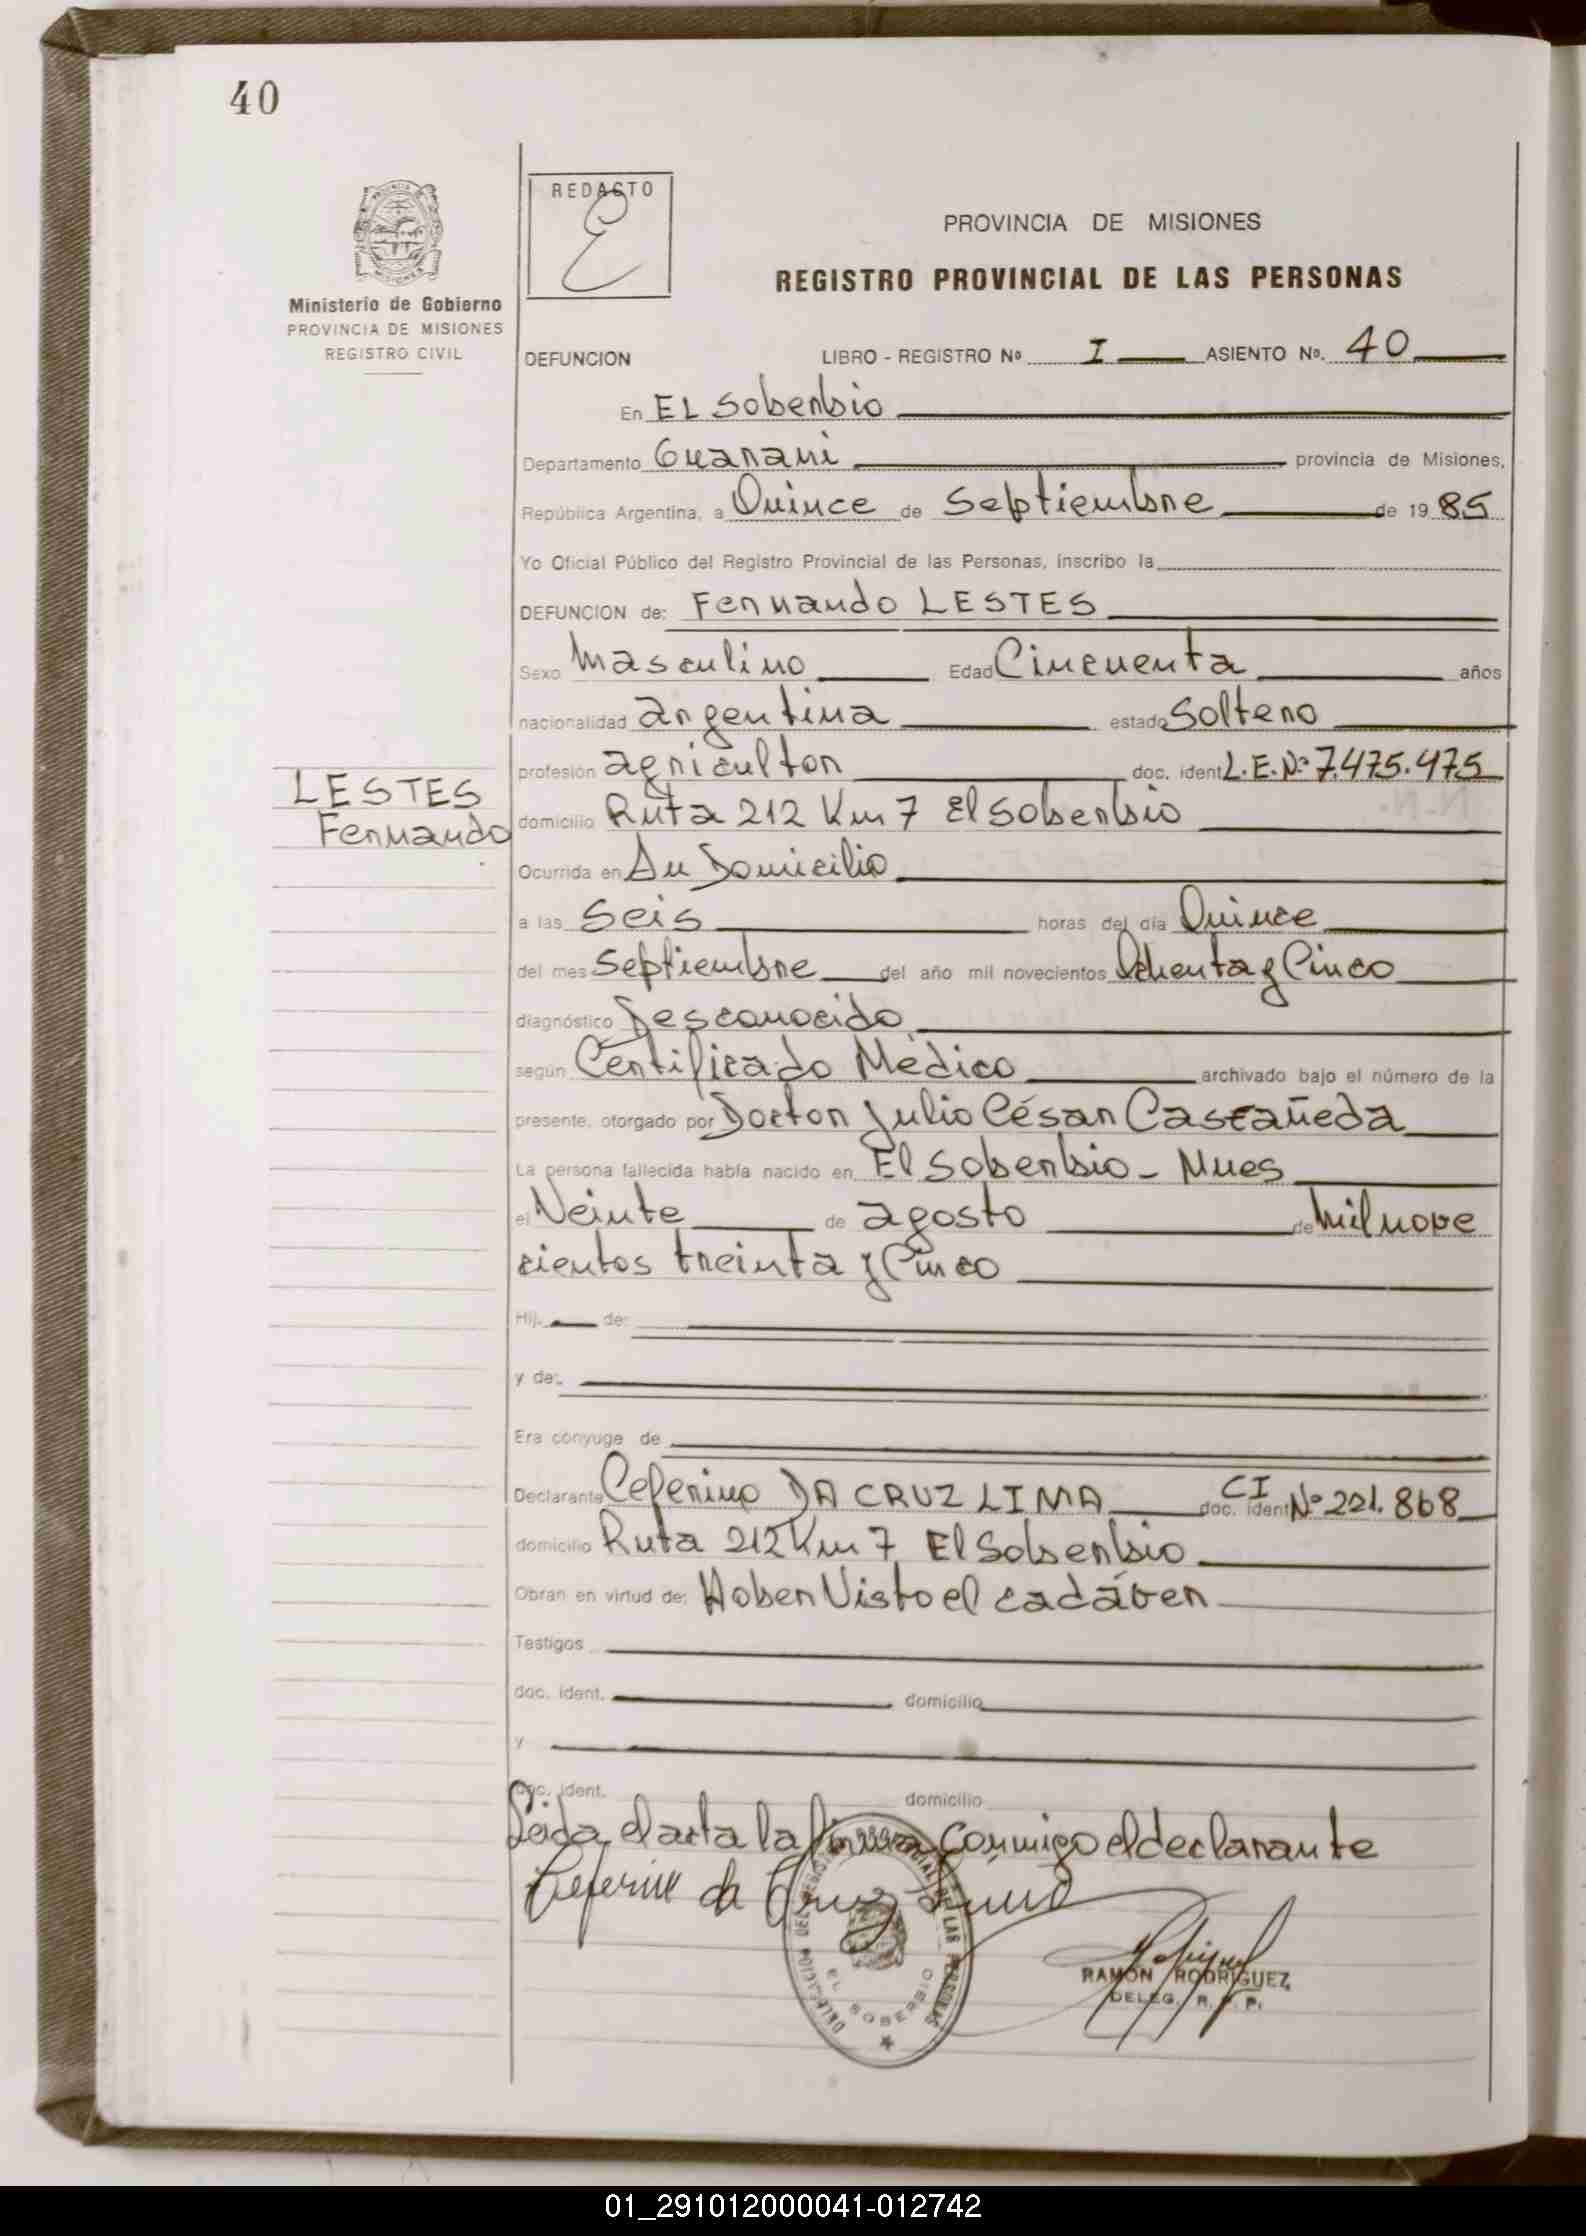 40
Ministerio de Gobierno
PROVINCIA DE MISIONES
REGISTRO CIVIL
REDACTO
PROVINCIA DE MISIONES
REGISTRO PROVINCIAL DE LAS PERSONAS
DEFUNCION LIBRO - REGISTRO Nº I ASIENTO Nº. 40
En EL Soberbio
Departamento Guarani provincia de Misiones,
República Argentina, a Quince de Septiembre de 19 85
Yo Oficial Público del Registro Provincial de las Personas, inscribo la
DEFUNCION de: Fernando LESTES
Sexo Masculino Edad Cincuenta años
nacionalidad argentina estado Soltero
LESTES
Fernando
profesión agricultor doc. ident L.E.Nº 7.475.475
domicilio Ruta 212 Km 7 El Soberbio
Ocurrida en Su Domicilio
a las Seis horas del día Quince
del mes Septiembre del año mil novecientos Ochenta y Cinco
diagnóstico Desconocido
según Certificado Médico archivado bajo el número de la
presente, otorgado por Doctor Julio César Castañeda
La persona fallecida había nacido en El Soberbio - Mnes
el Veinte de agosto de Mil nove
cientos treinta y Cinco
Hij. de:
y de:
Era cónyuge de
Declarante Ceferino DA CRUZ LIMA doc. ident CI Nº 221.868
domicilio Ruta 212 Km 7 El Soberbio
Obran en virtud de: Haber Visto el cadáver
Testigos
doc. ident. domicilio
y
doc. ident. domicilio
Leida el acta la firma Conmigo el declarante
Ceferino da Cruz Lima
DELEGACION DEL REGISTRO PROVINCIAL DE LAS PERSONAS
EL SOBERBIO
RAMON RODRIGUEZ
DELEG. R. P. P.
01_291012000041-012742